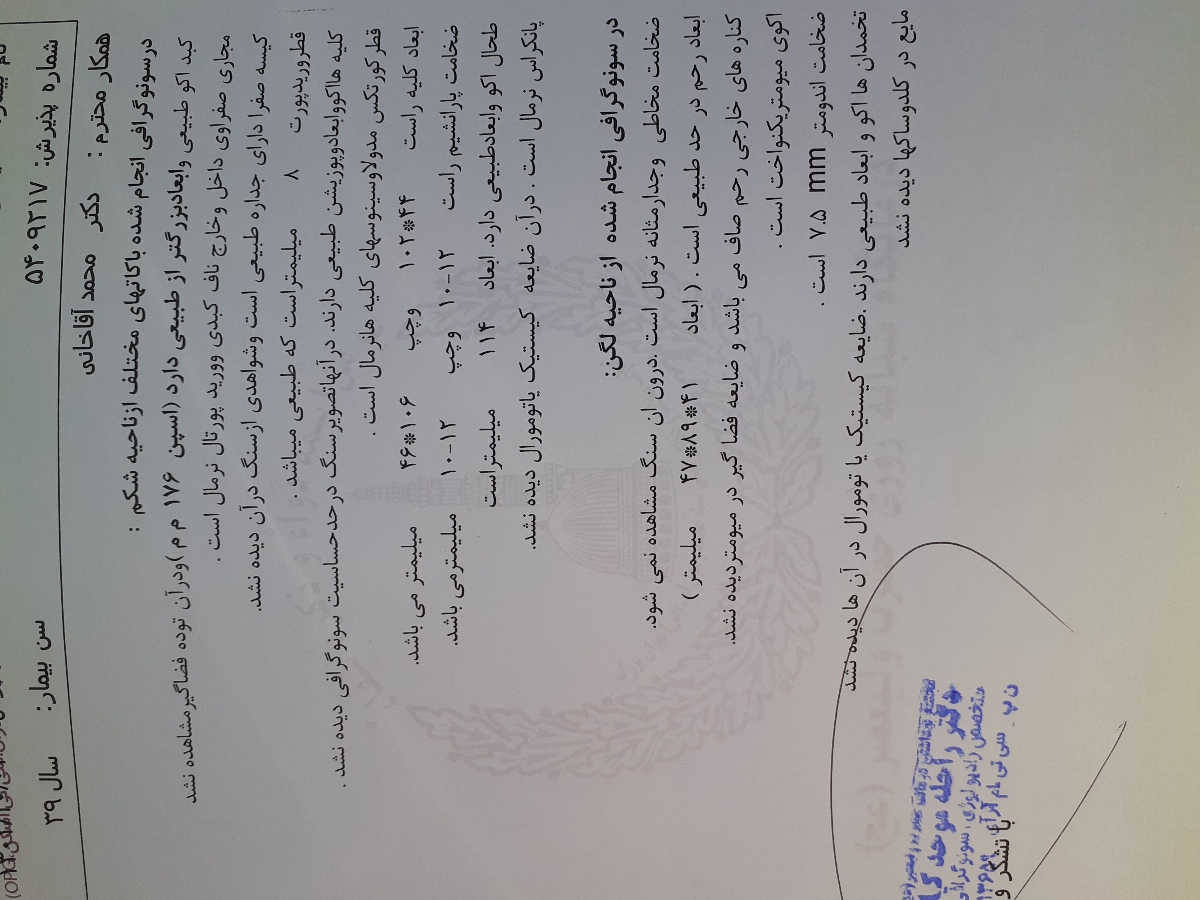 شماره پذیرش: ۵۴۰۹۲۱۷ سن بیمار: ۳۹ سال
همکار محترم : دکتر محمد آقاخانی
درسونوگرافی انجام شده باکاتهای مختلف ازناحیه شکم :
کبد اکو طبیعی وابعادبزرگتر از طبیعی دارد (اسپن ۱۷۶ م م )ودرآن توده فضاگیرمشاهده نشد
مجاری صفراوی داخل وخارج ناف کبدی وورید پورتال نرمال است .
کیسه صفرا دارای جداره طبیعی است وشواهدی ازسنگ درآن دیده نشد.
قطروریدپورت ۸ میلیمتراست که طبیعی میباشد .
کلیه هااکووابعادوپوزیشن طبیعی دارند. درآنهاتصویرسنگ درحدحساسیت سونوگرافی دیده نشد .
قطرکورتکس مدولاوسینوسهای کلیه هانرمال است .
ابعاد کلیه راست ۴۴*۱۰۲ وچپ ۱۰۶*۴۶ میلیمتر می باشد.
ضخامت پارانشیم راست ۱۲-۱۰ وچپ ۱۲-۱۰ میلیمترمی باشد.
طحال اکو وابعادطبیعی دارد. ابعاد ۱۱۴ میلیمتراست
پانکراس نرمال است . درآن ضایعه کیستیک یاتومورال دیده نشد.
درسونوگرافی انجام شده از ناحیه لگن:
ضخامت مخاطی وجدارمثانه نرمال است .درون ان سنگ مشاهده نمی شود.
ابعاد رحم در حد طبیعی است . ( ابعاد ۴۱*۸۹*۴۷ میلیمتر )
کناره های خارجی رحم صاف می باشد و ضایعه فضا گیر در میومتردیده نشد.
اکوی میومتریکنواخت است .
ضخامت اندومتر ۷.۵ mm است .
تخمدان ها اکو و ابعاد طبیعی دارند .ضایعه کیستیک یا تومورال در آن ها دیده نشد
مایع در کلدوساکها دیده نشد
دکتر راحله موحد
متخصص رادیولوژی، سونوگرافی
سی تی ام آرآی
با تشکر و